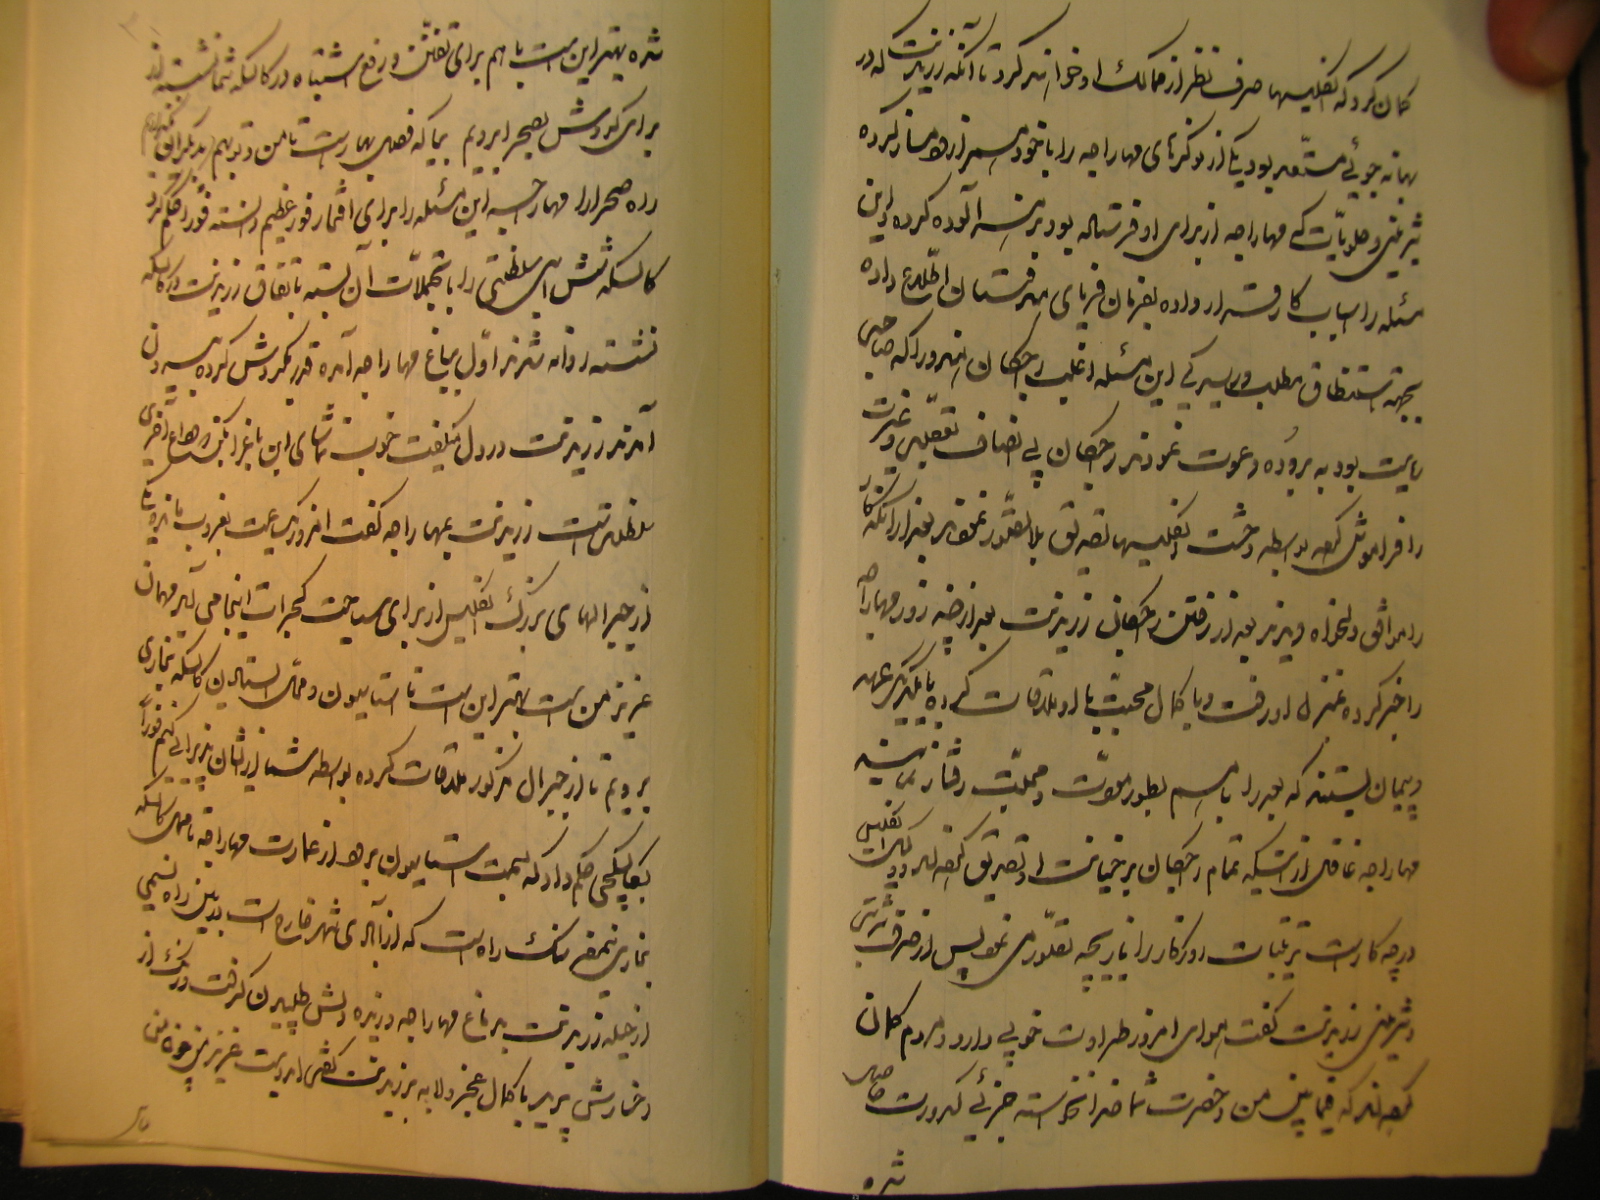 کمان کرد که انگلیسها صرف نظر از ممالک او خواهند کرد تا آنکه رزیدنت که در
بهانه جوئی مستعد بود یکی از نوکرهای مهاراجه را با خود همراز و دمساز کرده
شیرینی و حلویات که مهاراجه از برای او فرستاده بود بزهر آلوده کرده و این
مسئله را اسباب کار قرار داده بفرمان فرمای هندوستان اطلاع داده
بجهة استنطاق مطلب و رسیدگی این مسئله اغلب راجگان هند را که صاحب
رایت بود به بروده دعوت نمودند راجگان بی انصاف تعصب و غیرت
را فراموش کرده بواسطه وحشت انگلیسها تصدیق بلا تصور نموده بعد از آنکه کار
را موافق دلخواه دیدند بعد از رفتن راجگان رزیدنت بعد از چند روز مهاراجه
را خبر کرده بمنزل او رفت و با کمال محبت با او ملاقات کرده با یکدیگر عهد
و پیمان بستند که بعد را با هم بطور مودت و محبت رفتار نمایند
مهاراجه غافل از اینکه تمام راجگان بر خیانت او تصدیق کرده اند و دولت انگلیس
در چه کار است ترتیبات روزگار را بازیچه تصور می نمود پس از صرف شربت
و شیرینی رزیدنت گفت هوای امروز طراوت خوبی دارد و مردم کمان
کرده اند که فیمابین من و حضرت شما خدا نخواسته جزئی کدورت حاصل
شده
شده بهتر این است با هم برای تفنن و رفع اشتباه در کالسکه شما نشسته
برای گردش بصحرا برویم بیا که فصل بهار است تا من و تو بهم بدیگران گذاریم
راه صحرا را مهاراجه این مسئله را برای افتخار فوز عظیم دانسته فوراً حکم کرد
کالسکه شش اسبی سلطنتی را با تجملات آن بسته باتفاق رزیدنت در کالسکه
نشسته روانه شدند اول بباغ مهاراجه آمده قدری گردش کرده بیرون
آمدند رزیدنت در دل میگفت خوب تماشای این باغ را بکن وداع آخری
سلطنت است رزیدنت بمهاراجه گفت امروز یک ساعت بغروب مانده یکی
از جنرالهای بزرگ انگلیس از برای سیاحت گجرات اینجا می آید مهمان
عزیز من است بهتر این است تا استاسیون و محل ایستادن کالسکه بخاری
برویم تا از جنرال مذکور ملاقات کرده بواسطه شما از ایشان پذیرائی کنم فوراً
بکالسکچی حکم داد که بسمت استاسیون برود از عمارت مهاراجه تا محل کالسکه
بخاری نیم فرسنگ راه است که از آبادی شهر خارج است بدبین راه نسیمی
از حیله رزیدنت بدماغ مهاراجه وزیده دلش طپیدن گرفت و رنگ از
رخسارش پرید با کمال عجز و لابه برزیدنت گفت ای دوست عزیز من